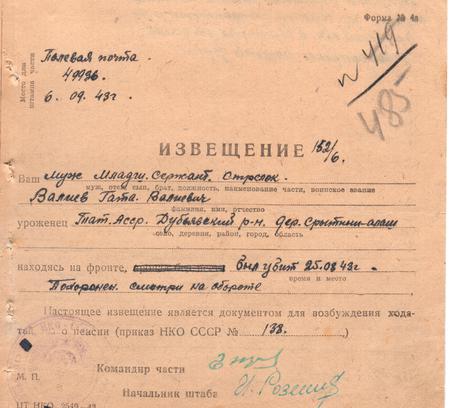 Форма № 4а
Место для
штампа части
Полевая почта
49936.
6. 09. 43г.
N 419
485
ИЗВЕЩЕНИЕ 152/6.
Ваш Муж Младш. Сержант. Стрелок.
муж, отец, сын, брат, должность, наименование части, воинское звание
Валиев Гата Валиевич
фамилия, имя, отчество
уроженец Тат. Асср. Дубьязский р-н. дер.
село, деревня, район, город, область
находясь на фронте, был убит 25.08 43г.
время и место
Похоронен. смотри на обороте
Настоящее извещение является документом для возбуждения хода-
тай о пенсии (приказ НКО СССР № 138.)
Командир части
М. П.
Начальник штаба